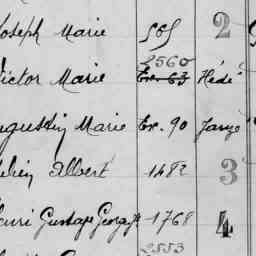 Joseph Marie 505 2
2560
Victor Marie Ex. 63 Hédé
Augustin Marie Ex. 90 Janzé
Albert 1482 3
Henri Gustave Georges 1768 4
2553